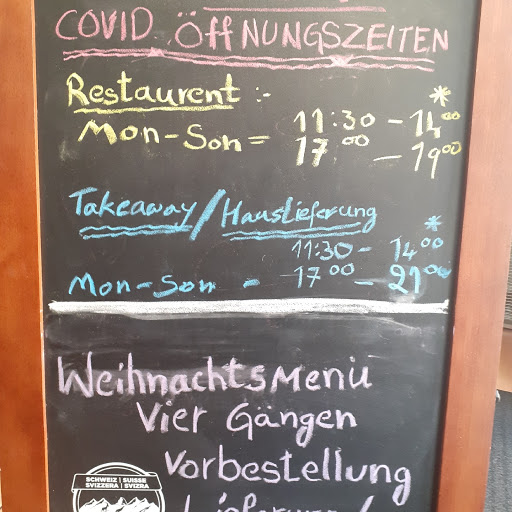 COVID ÖFFNUNGSZEITEN
Restaurent :-
*
11:30 - 14 00
Mon-Son = 17 00 - 19 00
Takeaway/Hauslieferung
*
11:30 - 14 00
Mon-Son - 17 00 - 21 00
Weihnachtsmenü
Vier Gängen
Vorbestellung
SCHWEIZ | SUISSE
SVIZZERA | SVIZRA